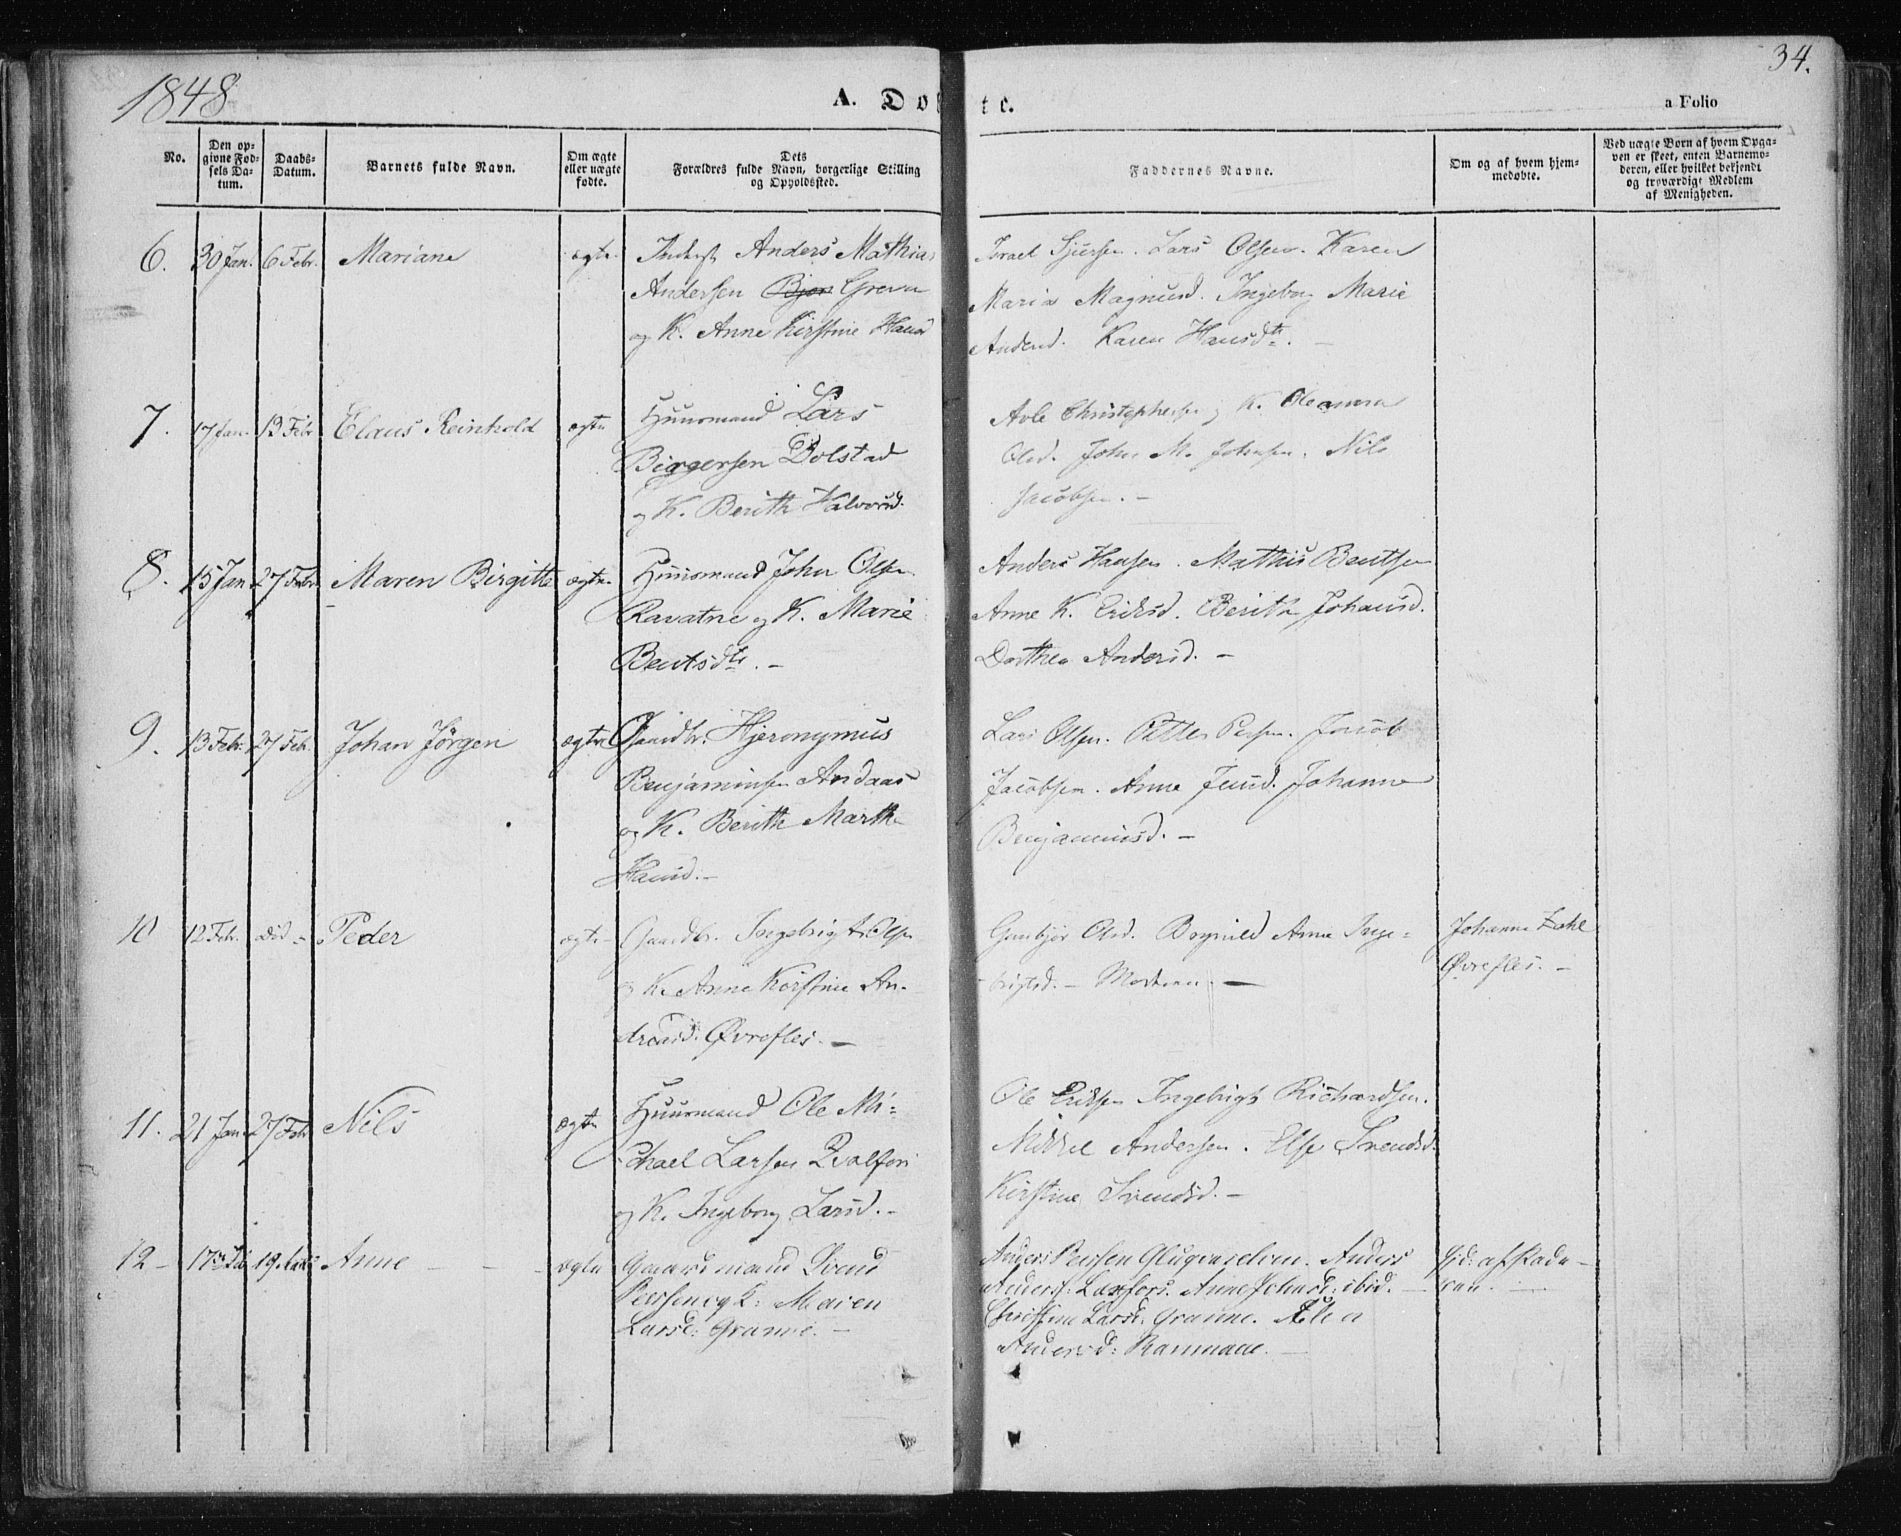 1848
34.
A. Do
te.
a Folio
No.
Den op-
givne Fød-
sels Da-
tum.
Daabs-
Datum.
Barnets fulde Navn.
Om ægte
eller uægte
fødte.
Dets
Forældres fulde Navn, borgerlige Stilling
og Opholdssted.
Faddernes Navne.
Om og af hvem hjem-
medøbte.
Ved uægte Børn af hvem Opga-
ven er skeet, enten Barnemo-
deren, eller hvilket bekjendt
og troværdigt Medlem
af Menigheden.
6. 30 Jan. 6 Febr. Mariane ægte Inderst Anders Mathias
Andersen Grevn
og K. Anne Kirstine Hansd
Israel Sjursen. Lars Olsen. Karen
Maria Magnusd. Ingeborg Marie
Andersd. Karen Hansdtr. –
7. 17 Jan. 13 Febr Claus Reinhold ægte Huusmand Lars
Birgersen Dolstad
og K. Berith Halvorsd.
Christophersen og K. Oleanna
Olsd. John M. Johnsen. Nils
Jacobsen. –
8. 15 Jan 27 Febr Maren Birgitte ægte Huusmand John Olsen
Ravatne og K. Marie
Bentsdtr. –
Anders Hansen. Mathis Bentsen
Anne K. Eriksd. Berith Johansd.
Dorthea Andersd. –
9. 13 Febr. 27 Feb. Johan Jörgen ægte Gaardbr. Hjeronymus
Benjaminsen Andaas
og K. Berith Marthe
Hansd. –
Lars Olsen. Petter Persen. Jacob
Jacobsen. Anne Jensd. Johanne
Benjaminsd. –
10 12 Feb. Dto – Peder ægte – Gaardbr. Ingebrigt Olsen
og K. Anne Kirstine An-
dreasd. Øvrefles. –
Gunbjør Olsd. Ragnild Anna Inge=
brigtsd. – Moderen. –
Johanna
Øvrefles. –
11. 21 Jan 27 Febr Nils ægte Huusmand Ole Mi=
chael Larsen
og K. Ingeborg Larsd. –
Ole Eriksen Ingebrigt Richardsen.
Mikkel Andersen. Else Svendsd.
Kirstine Svendsd. –
12 – 17de 19 Anne – – – ægte Gaardmand Svend
Persen og K: Maren
Larsd: Granne. –
Anders Persen. Anders
Anders: Laxfors. Anne Johnsd: ibid. –
Larsd: Granne.
Andersd:
Hjd: af